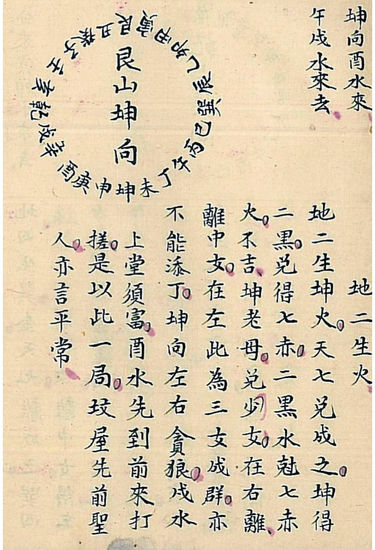 坤向酉水來
午戌水來去
艮山坤向
壬子癸丑艮寅甲卯乙辰巽巳丙午丁未坤申庚酉辛戌乾亥
地二生火
地二生坤火天七兌成之坤得
二黑兌得七赤二黑水尅七赤
火不吉坤老母兌少女在右離
離中女在左此為三女成群亦
不能添丁坤向左右貪狼戌水
上堂須富酉水先到前來打
搓是以此一局坟屋先前聖
人亦言平常